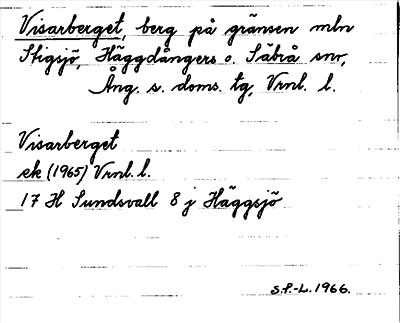 Visarberget, berg på gränsen mln
Stigsjö, Häggdångers o. Säbrå snr,
Ång. s. doms. tg, Vrnl. l.
Visarberget
ek (1965) Vrnl. l.
17 H Sundsvall 8 j Häggsjö
S.P.-L. 1966.